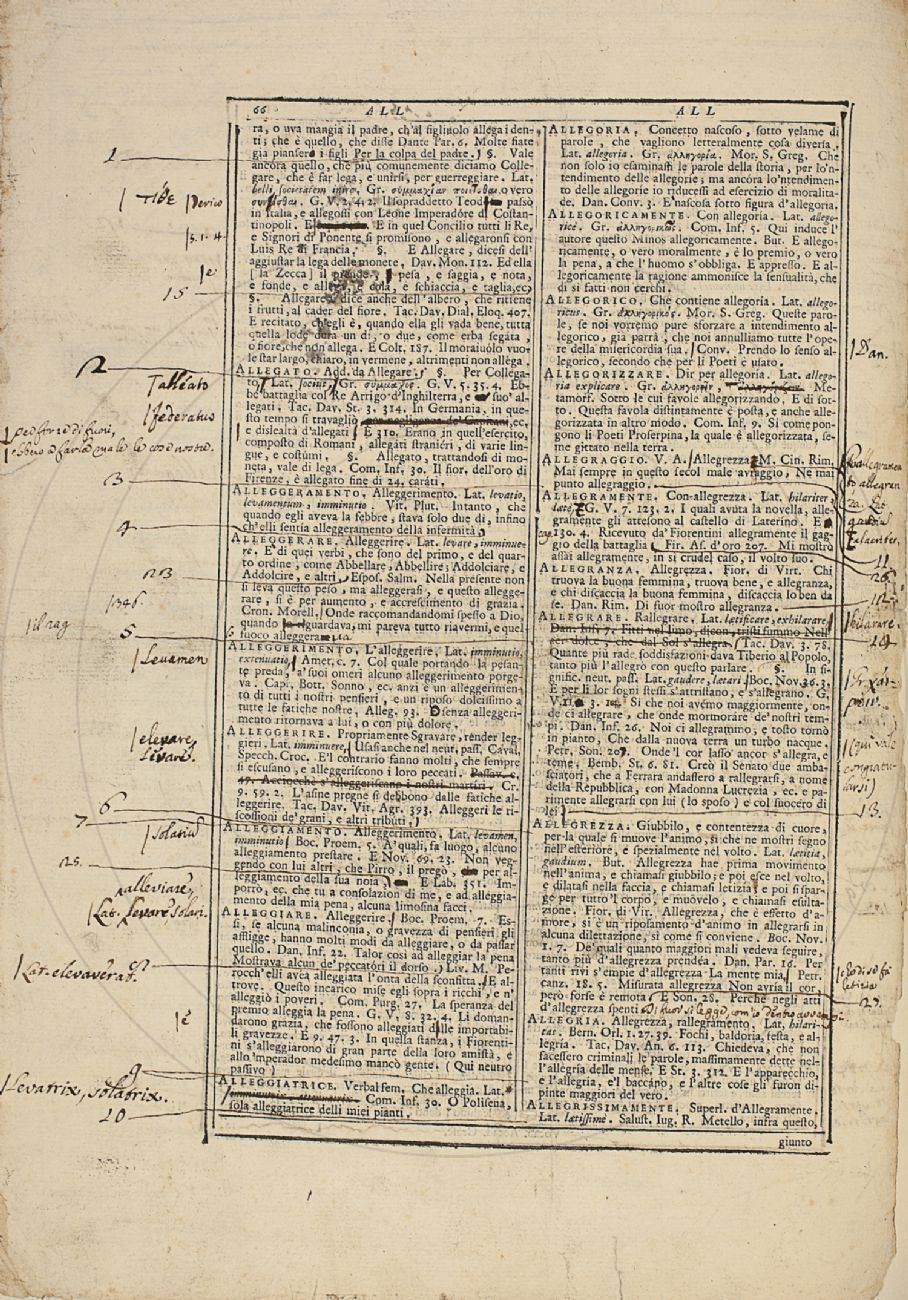 66 ALL ALL
ra, o uva mangia il padre, ch'al figliuolo allega i den-
ti; che è quello, che disse Dante Par. 6. Molte fiate
gia pianser i figli Per la colpa del padre. §. Vale
ancora quello, che più comunemente diciamo Colle-
gare, che è far lega, e unirsi, per guerreggiare. Lat.
belli societatem inire. Gr. συμμαχίαν ποιεῖσθαι, o vero
G. V. 2. 4. 2. Il sopraddetto Teod passò
in Italia, e allegossi con Leone Imperadore di Costan-
tinopoli. E in quel Concilio tutti li Re,
e Signori di Ponente si promisono, e allegaronsi con
Luis Re di Francia. §. E Allegare, dicesi dell'
aggiustar la lega delle monete. Dav. Mon. 112. Ed ella
[la Zecca] il prende, pesa, e saggia, e nota,
e fonde, e allega, e cola, e schiaccia, e taglia, ec.
§. Allegare, dice anche dell'albero, che ritiene
i frutti, al cader del fiore. Tac. Dav. Dial. Eloq. 407.
E recitato, ch'egli è, quando ella gli vada bene, tutta
quella lode dura un dì, o due, come erba segata,
o fiore, che non allega. E Colt. 187. Il moraiuolo vuo-
le star largo, chiaro, in vermene, altrimenti non allega.
ALLEGATO. Add. da Allegare. §. Per Collega-
to. Lat. socius, Gr. σύμμαχος. G. V. 5. 35. 4. Eb-
be battaglia col Re Arrigo d'Inghilterra, e suo' al-
legati. Tac. Dav. St. 3. 314. In Germania, in que-
sto tempo si travagliò ec.
e dislealtà d'allegati. E 310. Erano in quell'esercito,
composto di Romani, allegati stranieri, di varie lin-
gue, e costumi. §. Allegato, trattandosi di mo-
neta, vale di lega. Com. Inf. 30. Il fior. dell'oro di
Firenze, è allegato fine di 24. carati.
ALLEGGERAMENTO. Alleggerimento. Lat. levatio,
levamentum, imminutio. Vit. Plut. Intanto, che
quando egli aveva la febbre, stava solo due dì, infino
ch'elli sentia alleggeramento della infermità.
ALLEGGERARE. Alleggerire. Lat. levare, imminue-
re. E di quei verbi, che sono del primo, e del quar-
to ordine, come Abbellare, Abbellire; Addolciare, e
Addolcire, e altri. Espos. Salm. Nella presente non
si leva questo peso, ma alleggerasi, e questo allegge-
rare, si è per aumento, e accrescimento di grazia.
Cron. Morell. Onde raccomandandomi spesso a Dio,
quando guardava, mi pareva tutto riavermi, e quel
fuoco alleggerarsi.
ALLEGGERIMENTO. L'alleggerire. Lat. imminutio,
extenuatio. Amet. c. 7. Col quale portando la pesan-
te preda, a' suoi omeri alcuno alleggerimento porge-
va. Capr. Bott. Sonno, ec. anzi è un alleggerimen-
to di tutti i nostri pensieri, e un riposo dolcissimo a
tutte le fatiche nostre. Alleg. 93. O senza alleggeri-
mento ritornava a lui, o con più dolore.
ALLEGGERIRE. Propriamente Sgravare, render leg-
gieri. Lat. imminuere. Usasi anche nel neut. pass. Caval.
Specch. Croc. E'l contrario fanno molti, che sempre
si escusano, e alleggeriscono i loro peccati. Passav. c.
47. Acciocchè s'alleggeriscano i nostri martiri. Cr.
9. 59. 2. L'asine pregne si debbono dalle fatiche al-
leggerire. Tac. Dav. Vit. Agr. 393. Alleggerì le ri-
scossioni de' grani, e altri tributi.
ALLEGGIAMENTO. Alleggerimento. Lat. levamen,
imminutio. Boc. Proem. 5. A' quali, fa luogo, alcuno
alleggiamento prestare. E Nov. 69. 23. Non veg-
gendo con lui altri, che Pirro, il pregò, per al-
leggiamento della sua noia. E Lab. 351. Im-
porrò, ec. che tu a consolazion di me, e ad alleggia-
mento della mia pena, alcuna limosina facci.
ALLEGGIARE. Alleggerire. Boc. Proem. 7. Es-
si, se alcuna malinconia, o gravezza di pensieri gli
affligge, hanno molti modi da alleggiare, o da passar
quello. Dan. Inf. 22. Talor così ad alleggiar la pena
Mostrava alcun de' peccatori il dorso. Liv. M. Pe-
rocch'elli avea alleggiata l'onta della sconfitta. E al-
trove. Questo incarico mise egli sopra i ricchi, e n'
alleggiò i poveri. Com. Purg. 27. La speranza del
premio alleggia la pena. G. V. 8. 32. 4. Li doman-
darono grazia, che fossono alleggiati dalle importabi-
li gravezze. E 9. 47. 3. In questa stanza, i Fiorenti-
ni s'alleggiarono di gran parte della loro amistà, e
allo 'mperador medesimo mancò gente. (Qui neutro
passivo)
ALLEGGIATRICE. Verbal fem. Che alleggia. Lat.
Com. Inf. 30. O Polisena,
sola alleggiatrice delli miei pianti.
ALLEGORIA. Concetto nascoso, sotto velame di
parole, che vagliono letteralmente cosa diversa.
Lat. allegoria. Gr. ἀλληγορία. Mor. S. Greg. Che
non solo io esaminassi le parole della storia, per lo 'n-
tendimento delle allegorie; ma ancora lo 'ntendimen-
to delle allegorie io riducessi ad esercizio di moralita-
de. Dan. Conv. 3. E' nascosa sotto figura d'allegoria.
ALLEGORICAMENTE. Con allegoria. Lat. allego-
ricè. Gr. ἀλληγορικῶς. Com. Inf. 5. Qui induce l'
autore questo Minos allegoricamente. But. E allego-
ricamente, o vero moralmente, è lo premio, o vero
la pena, a che l'huomo s'obbliga. E appresso. E al-
legoricamente la ragione ammonisce la sensualità, che
di sì fatti non cerchi.
ALLEGORICO. Che contiene allegoria. Lat. allego-
ricus. Gr. ἀλληγορικός. Mor. S. Greg. Queste paro-
le, se noi vorremo pure sforzare a intendimento al-
legorico, già parrà, che noi annulliamo tutte l'ope-
re della misericordia sua. Conv. Prendo lo senso al-
legorico, secondo che per li Poeti è usato.
ALLEGORIZZARE. Dir per allegoria. Lat. allego-
ria explicare. Gr. ἀλληγορεῖν, Me-
tamorf. Sotto le cui favole allegorizzando. E di sot-
to. Questa favola distintamente è posta, e anche alle-
gorizzata in altro modo. Com. Inf. 9. Sì come pon-
gono li Poeti Proserpina, la quale è allegorizzata, se-
me gittato nella terra.
ALLEGRAGGIO. V. A. Allegrezza. M. Cin. Rim.
Mai sempre in questo secol male avraggio, Nè mai
punto allegraggio.
ALLEGRAMENTE. Con allegrezza. Lat. hilariter,
læte. G. V. 7. 123. 2. I quali avuta la novella, alle-
gramente gli attesono al castello di Laterino. E
130. 4. Ricevuto da' Fiorentini allegramente il gag-
gio della battaglia. Fir. As. d'oro 207. Mi mostrò
assai allegramente, in sì crudel caso, il volto suo.
ALLEGRANZA. Allegrezza. Fior. di Virt. Chi
truova la buona femmina, truova bene, e allegranza,
e chi discaccia la buona femmina, discaccia lo ben da
se. Dan. Rim. Di fuor mostro allegranza.
ALLEGRARE. Rallegrare. Lat. lætificare, exhilarare.
Dan. Inf. 7. Fitti nel limo, dicon, tristi fummo Nell'
aer dolce, che dal Sol s'allegra. Tac. Dav. 3. 78.
Quante più rade soddisfazioni dava Tiberio al Popolo,
tanto più l'allegrò con questo parlare. §. In si-
gnific. neut. pass. Lat. gaudere, lætari. Boc. Nov. 36. 3.
E per li lor sogni stessi s'attristano, e s'allegrano. G.
V. 11. 3. 14. Sì che noi avemo maggiormente, on-
de ci allegrare, che onde mormorare de' nostri tem-
pi. Dan. Inf. 26. Noi ci allegrammo, e tosto tornò
in pianto, Che dalla nuova terra un turbo nacque.
Petr. Son. 207. Onde 'l cor lasso ancor s'allegra, e
teme. Bemb. St. 6. 81. Creò il Senato due amba-
sciatori, che a Ferrara andassero a rallegrarsi, a nome
della Repubblica, con Madonna Lucrezia, ec. e pa-
rimente allegrarsi con lui (lo sposo) e col suocero di
lei.
ALLEGREZZA. Giubbilo, e contentezza di cuore,
per la quale si muove l'animo, sì che ne mostri segno
nell'esteriore, e spezialmente nel volto. Lat. lætitia,
gaudium. But. Allegrezza hae prima movimento
nell'anima, e chiamasi giubbilo; e poi esce nel volto,
e dilatasi nella faccia, e chiamasi letizia; e poi si spar-
ge per tutto 'l corpo, e muovelo, e chiamasi esulta-
zione. Fior. di Vir. Allegrezza, che è effetto d'a-
more, si è un riposamento d'animo in allegrarsi in
alcuna dilettazione, sì come si conviene. Boc. Nov.
1. 7. De' quali quanto maggiori mali vedeva seguire,
tanto più d'allegrezza prendéa. Dan. Par. 16. Per
tanti rivi s'empie d'allegrezza La mente mia. Petr.
canz. 18. 5. Misurata allegrezza Non avria il cor,
però forse è remota. E Son. 28. Perchè negli atti
d'allegrezza spenti Di fuor si legge, com'io dentro avvampi.
ALLEGRIA. Allegrezza, rallegramento. Lat. hilari-
tas. Bern. Orl. 1. 27. 39. Fochi, baldoria, festa, e al-
legria. Tac. Dav. An. 6. 113. Chiedeva, che non
facessero criminali le parole, massimamente dette nel-
l'allegria delle mense. E St. 3. 312. E l'apparecchio,
e l'allegria, e'l baccano, e l'altre cose gli furon di-
pinte maggiori del vero.
ALLEGRISSIMAMENTE. Superl. d'Allegramente.
Lat. lætissimè. Salust. Iug. R. Metello, infra questo,
giunto
1
15
2
federatus
3
4
1346.
5
Levamen
elevare
levare.
6
7
25.
alleviare
Lat. levare solari.
Levatrix, solatrix.
9
10
Dan.
11
hilarare.
13.
letitia
27.